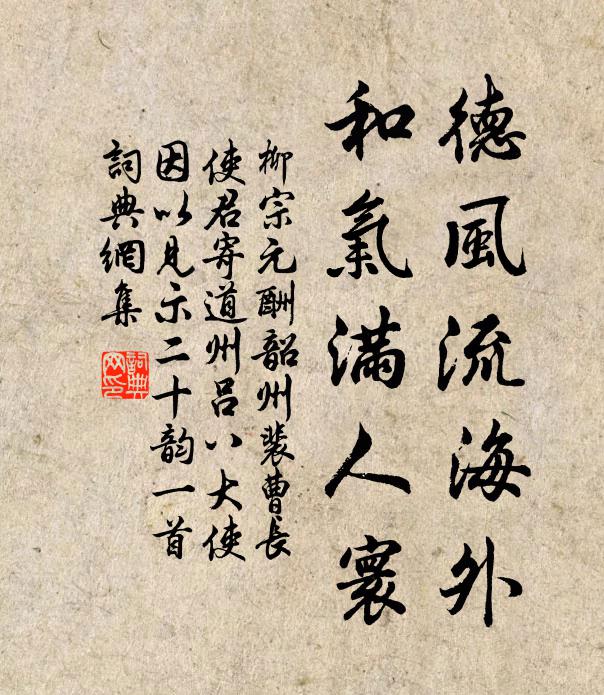 德風流海外
和氣滿人寰
柳宗元酬韶州裴曹長
使君寄道州呂八大使
因以見示二十韵一首
詞典網集
詞典网印